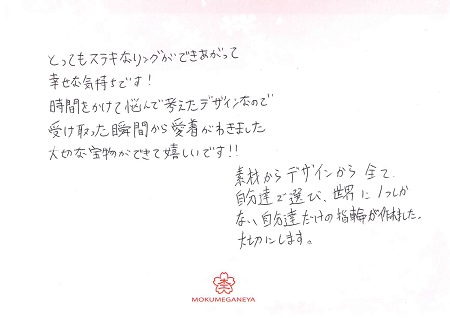 とってもステキなリングができあがって
幸せな気持ちです!
時間をかけて悩んで考えたデザインなので
受け取った瞬間から愛着がわきました
大切な宝物ができて嬉しいです!!
素材からデザインから全て、
自分達で選び、世界に1つしか
ない自分達だけの指輪が作れました。
大切にします。
MOKUMEGANEYA